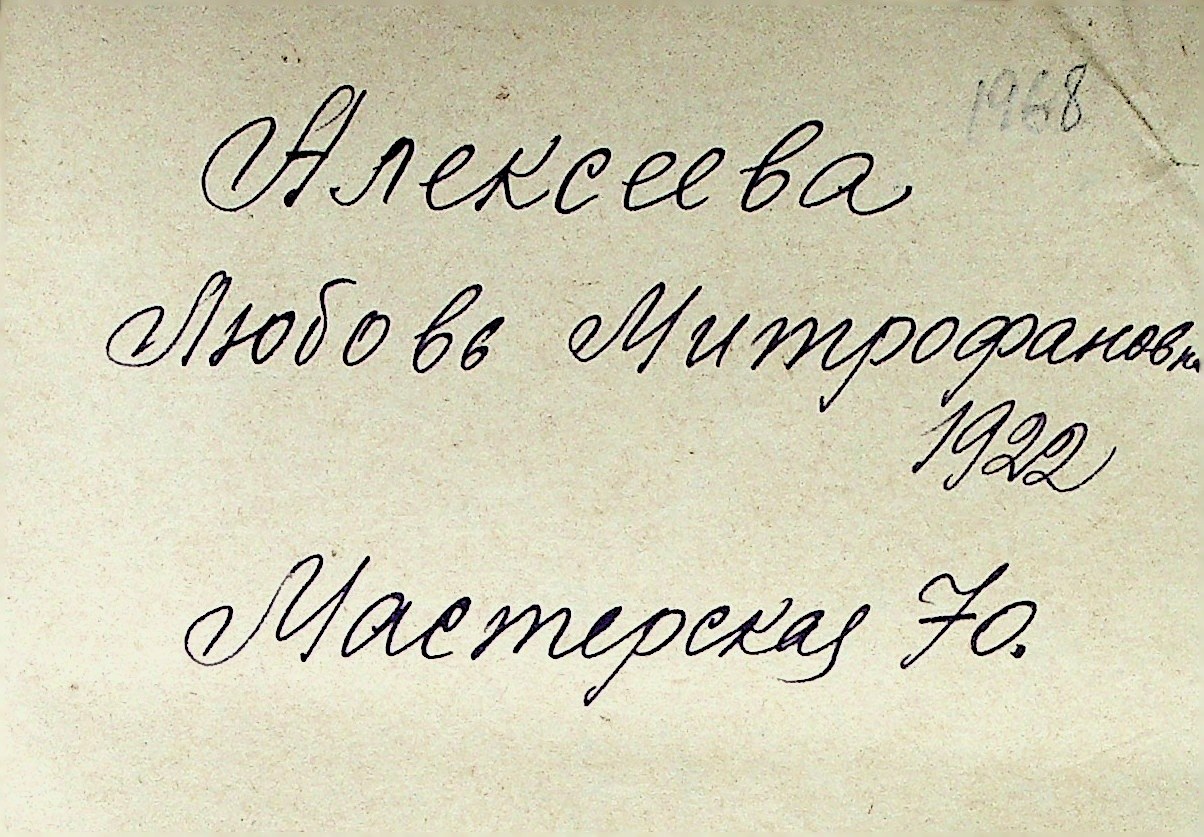 1968
Алексеева
Любовь Митрофановна
1922
Мастерская 70.